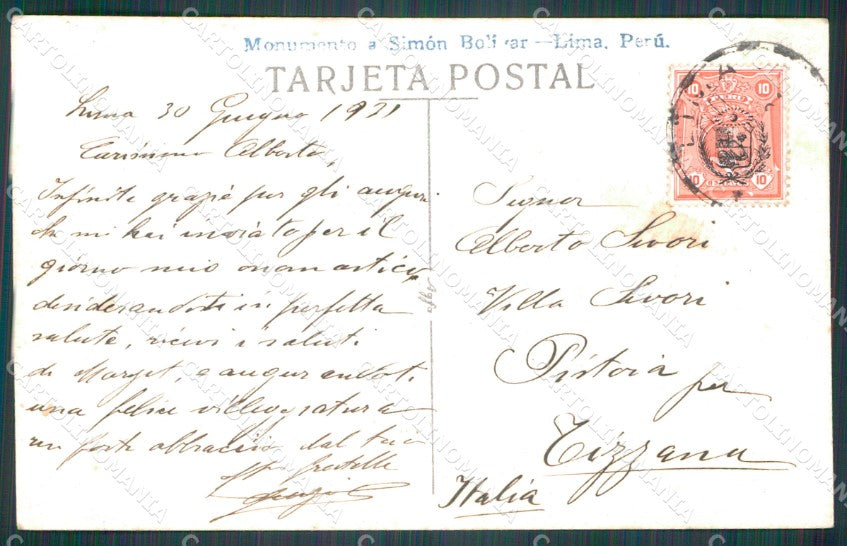 Monumento a Simón Bolívar—Lima, Perú.
TARJETA POSTAL
Lima 30 Giugno 1921
Carissimo Alberto,
Infinite grazie per gli auguri
che mi hai inviato per il
giorno mio onomastico,
desiderandoti in perfetta
salute, ricevi i saluti
di Marget, e augurandoti
una felice villeggiatura
un forte abbraccio dal tuo
fratello
Luigi
Signor
Alberto Sivori
Villa Sivori
Pistoia per
Tizzana
Italia
Agfa
10 10
PERU
10 10
LIMA
CARTOLINOMANIA